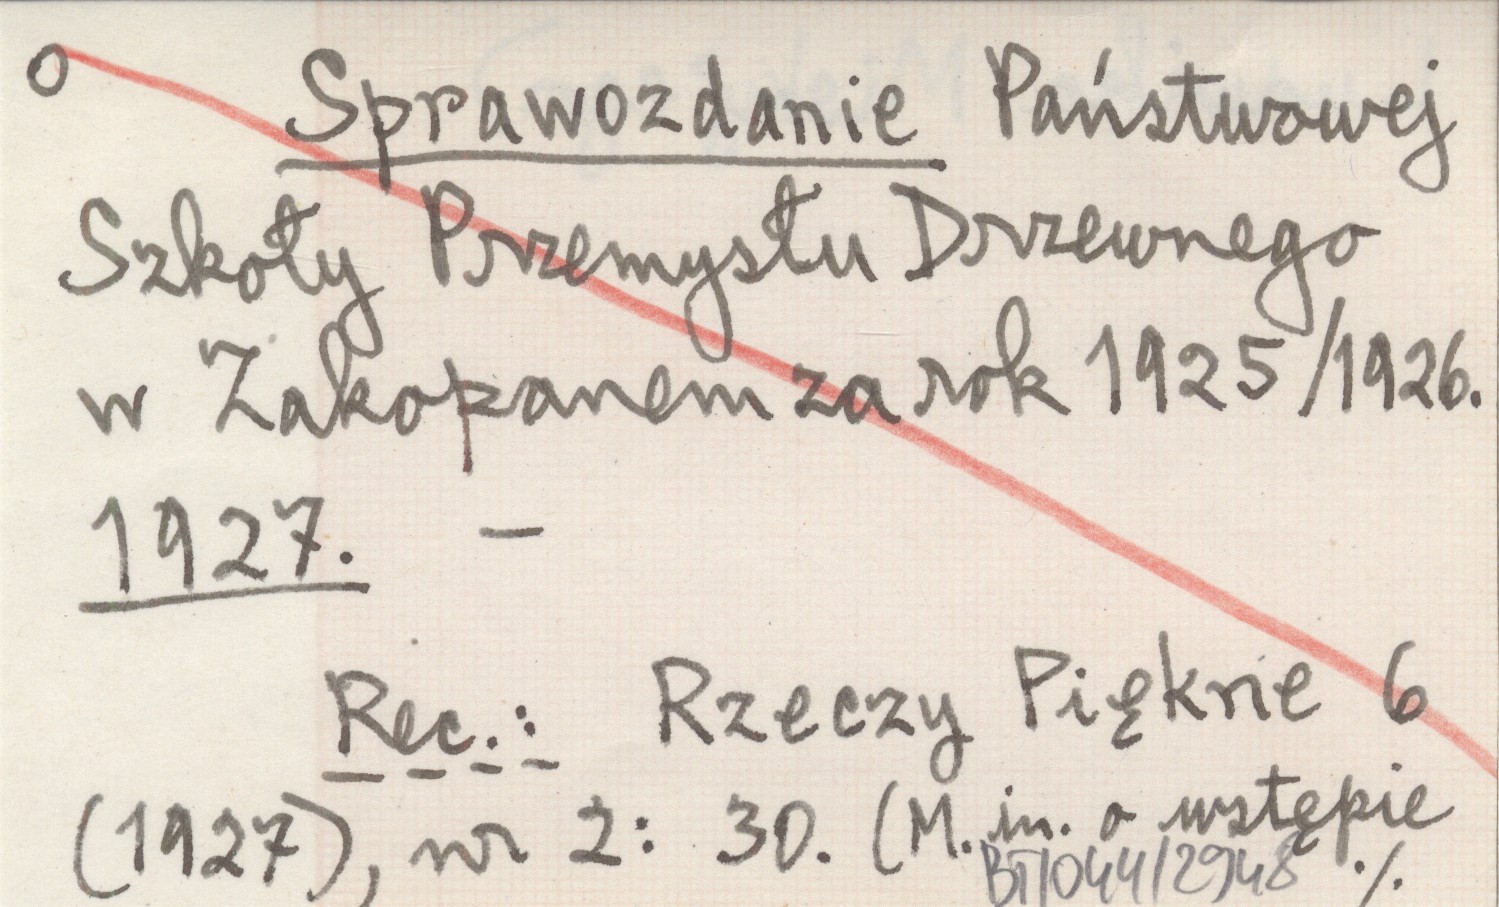 o Sprawozdanie Państwowej
Szkoły Przemysłu Drzewnego
w Zakopanem za rok 1925/1926.
1927. –
Rec.: Rzeczy Piękne 6
(1927), nr 2: 30. (M.in. o wstępie
BT/044/2948 ./.